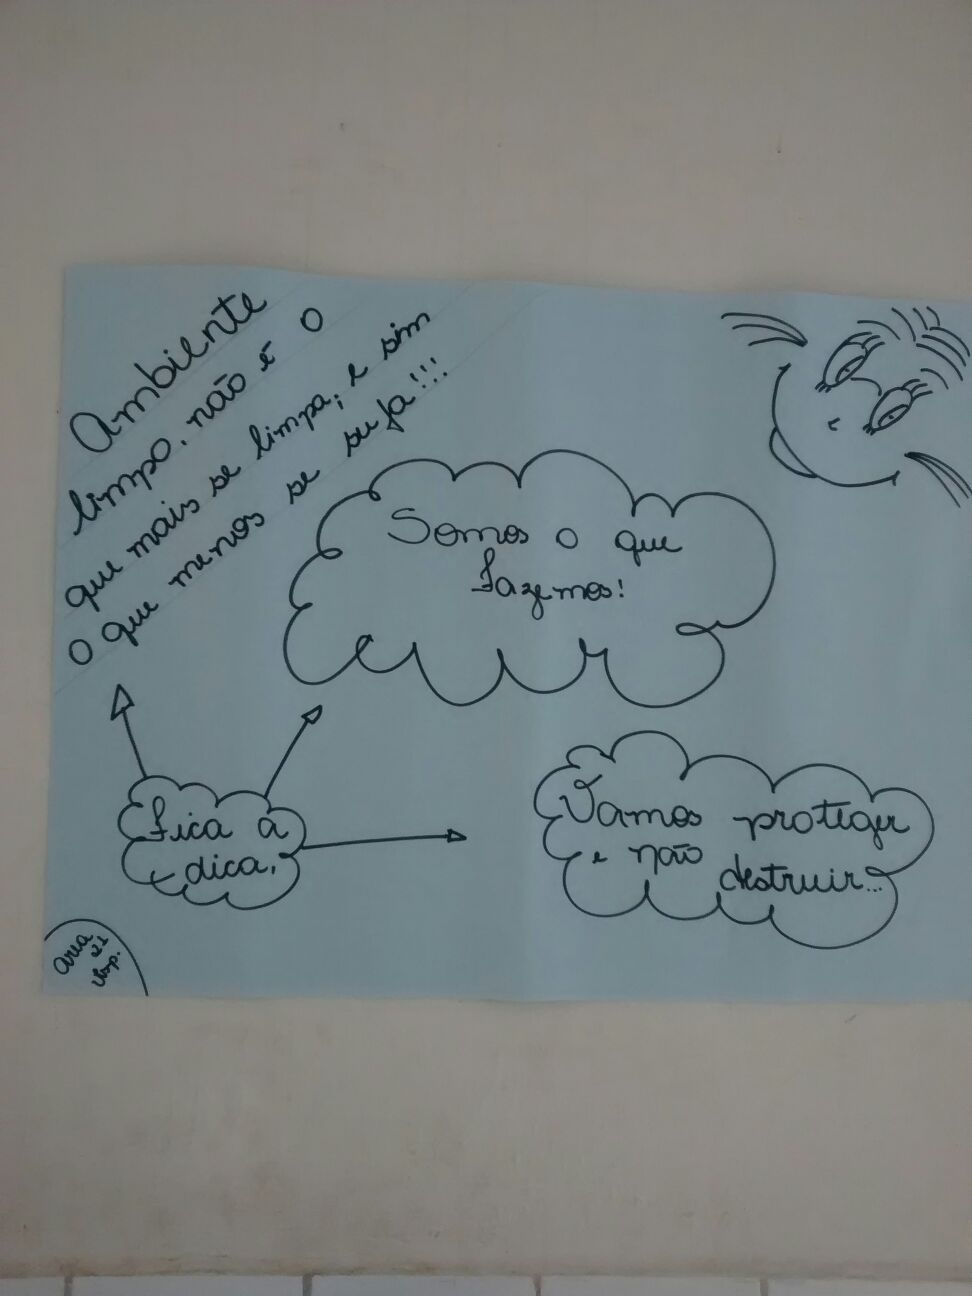 Ambiente
limpo, não é o
que mais se limpa; e sim
o que menos se suja!!!
Somos o que
fazemos!
Fica a
dica,
Vamos proteger
e não
destruir...
area
21